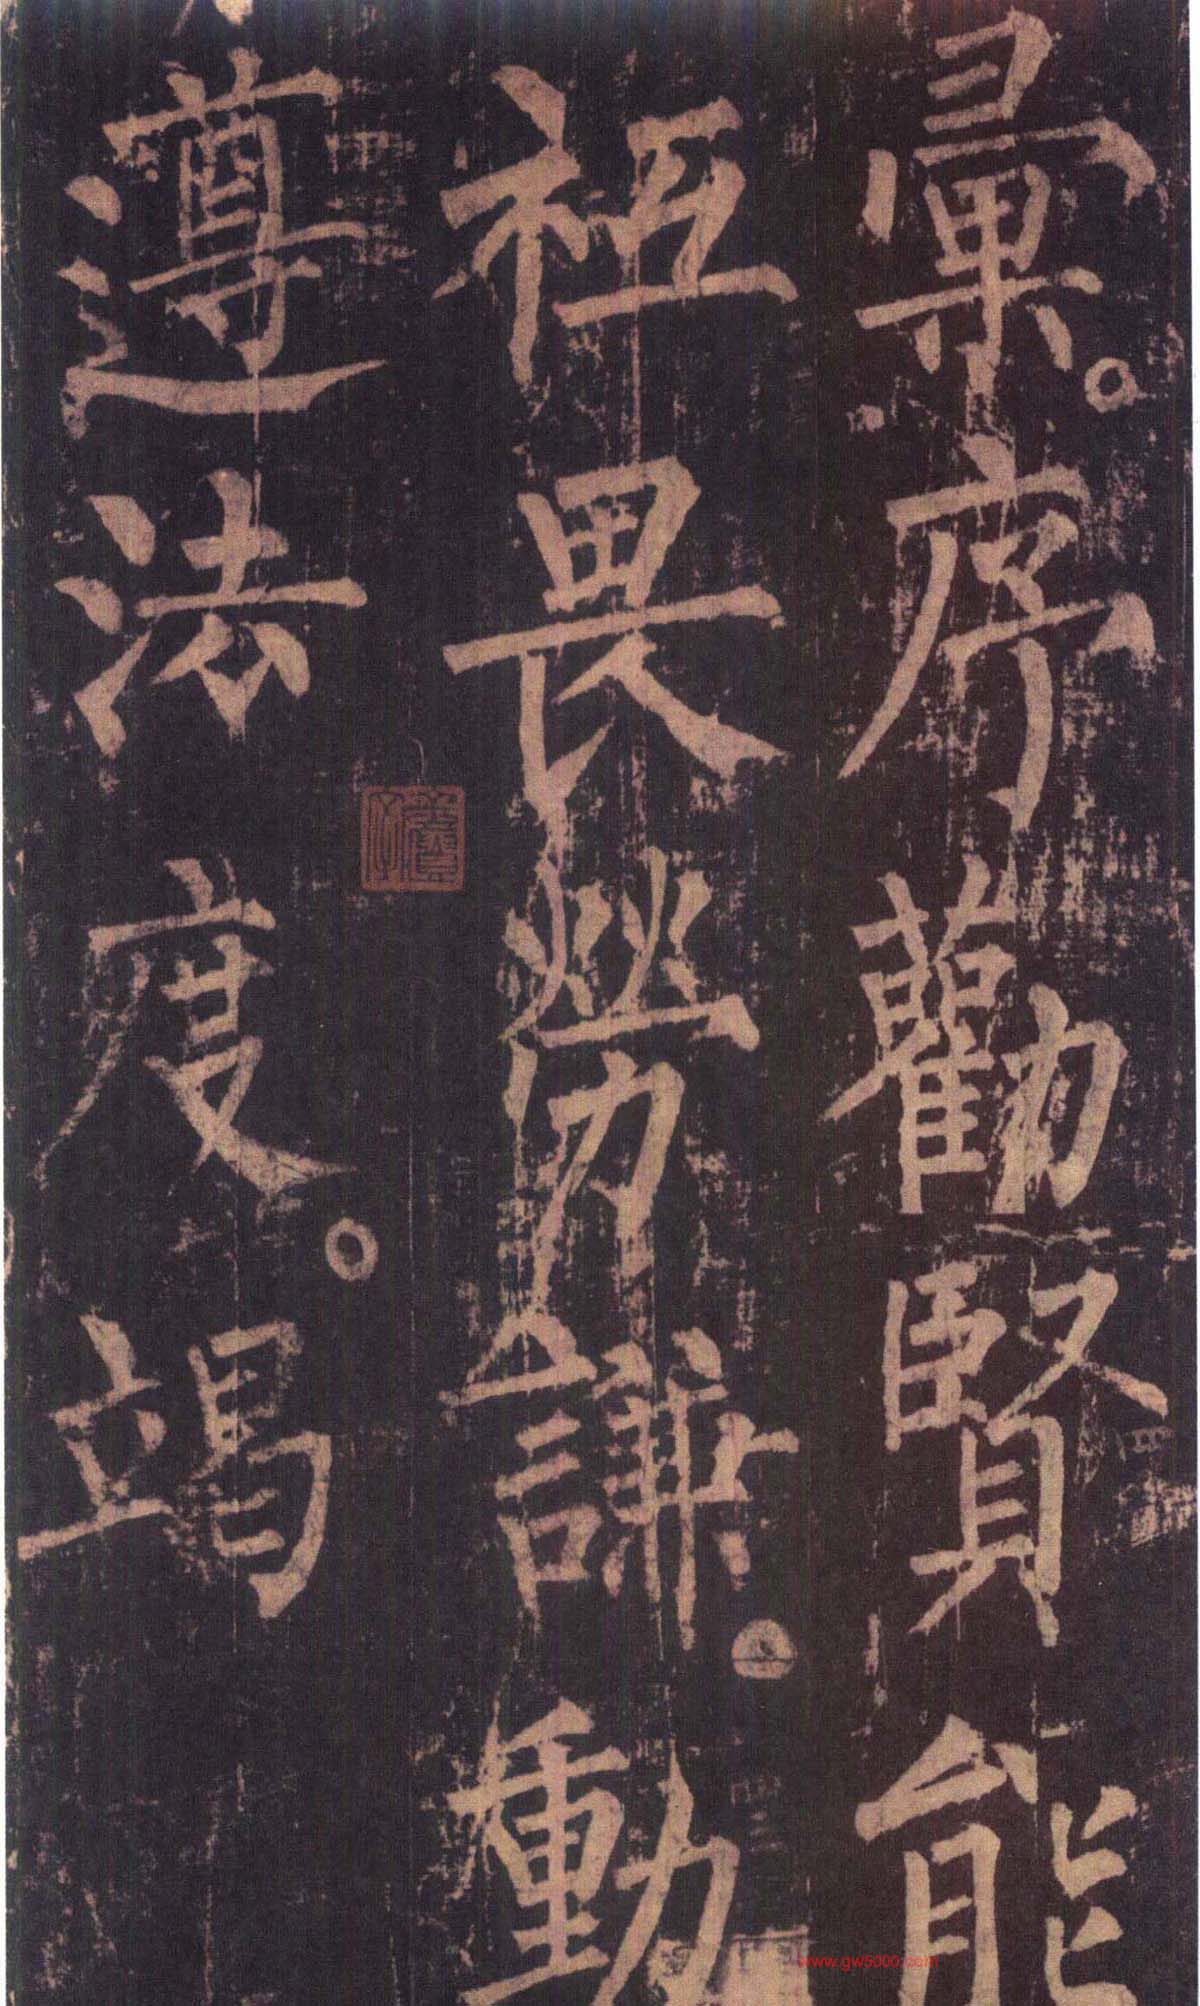 彙。序勸賢能
祗畏勞謙。動
遵法度。竭
www.gw5000.com